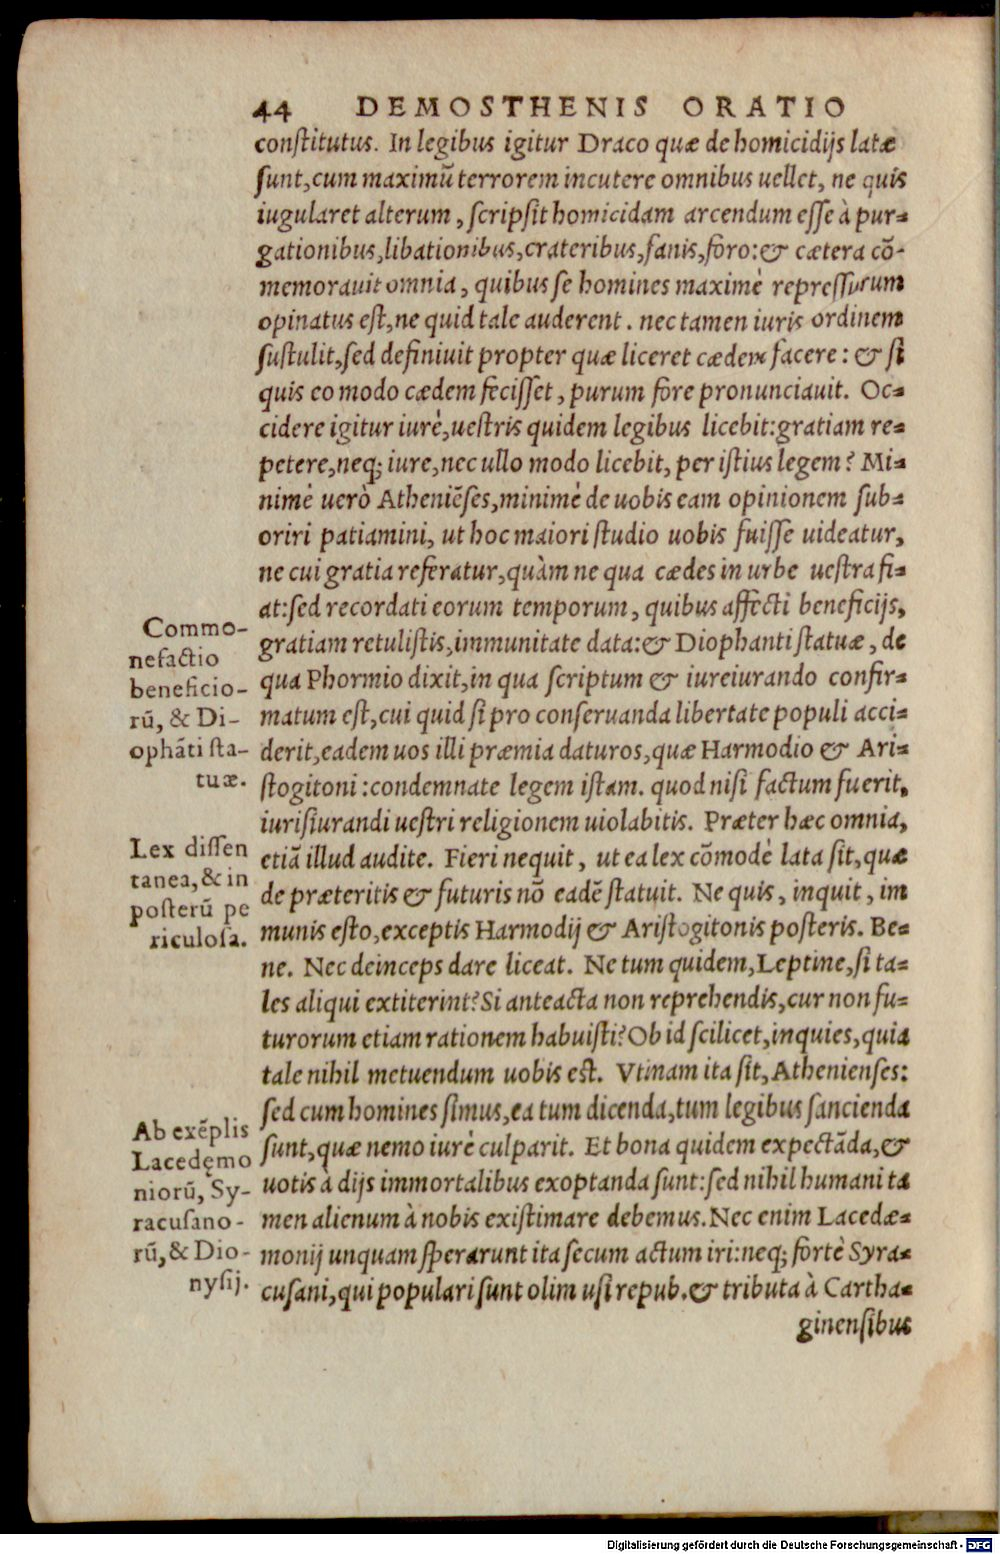 44 DEMOSTHENIS ORATIO
constitutus. In legibus igitur Draco quæ de homicidijs latæ
sunt, cum maximū terrorem incutere omnibus uellet, ne quis
iugularet alterum, scripsit homicidam arcendum esse à pur-
gationibus, libationibus, crateribus, fanis, foro: & cætera cō-
memorauit omnia, quibus se homines maximè repressurum
opinatus est, ne quid tale auderent. nec tamen iuris ordinem
sustulit, sed definiuit propter quæ liceret cædem facere: & si
quis eo modo cædem fecisset, purum fore pronunciauit. Oc-
cidere igitur iurè, uestris quidem legibus licebit: gratiam re-
petere, neq; iure, nec ullo modo licebit, per istius legem? Mi-
nimè uerò Atheniēses, minimè de uobis eam opinionem sub-
oriri patiamini, ut hoc maiori studio uobis fuisse uideatur,
ne cui gratia referatur, quàm ne qua cædes in urbe uestra fi-
at: sed recordati eorum temporum, quibus affecti beneficijs,
gratiam retulistis, immunitate data: & Diophanti statuæ, de
qua Phormio dixit, in qua scriptum & iureiurando confir-
matum est, cui quid si pro conseruanda libertate populi acci-
derit, eadem uos illi præmia daturos, quæ Harmodio & Ari-
stogitoni: condemnate legem istam. quod nisi factum fuerit,
iurisiurandi uestri religionem uiolabitis. Præter hæc omnia,
etiā illud audite. Fieri nequit, ut ea lex cōmodè lata sit, quæ
de præteritis & futuris nō eadē statuit. Ne quis, inquit, im
munis esto, exceptis Harmodij & Aristogitonis posteris. Be-
ne. Nec deinceps dare liceat. Ne tum quidem, Leptine, si ta-
les aliqui extiterint? Si anteacta non reprehendis, cur non fu-
turorum etiam rationem habuisti? Ob id scilicet, inquies, quia
tale nihil metuendum uobis est. Vtinam ita sit, Athenienses:
sed cum homines simus, ea tum dicenda, tum legibus sancienda
sunt, quæ nemo iurè culparit. Et bona quidem expectāda, &
uotis à dijs immortalibus exoptanda sunt: sed nihil humani ta
men alienum à nobis existimare debemus. Nec enim Lacedæ-
monij unquam sperarunt ita secum actum iri: neq; fortè Syra-
cusani, qui populari sunt olim usi repub. & tributa à Cartha-
ginensibus
Commo-
nefactio
beneficio-
rū, & Di-
ophāti sta-
tuæ.
Lex dissen
tanea, & in
posterū pe
riculosa.
Ab exēplis
Lacedęmo
niorū, Sy-
racusano-
rū, & Dio-
nysij.
Digitalisierung gefördert durch die Deutsche Forschungsgemeinschaft - DFG